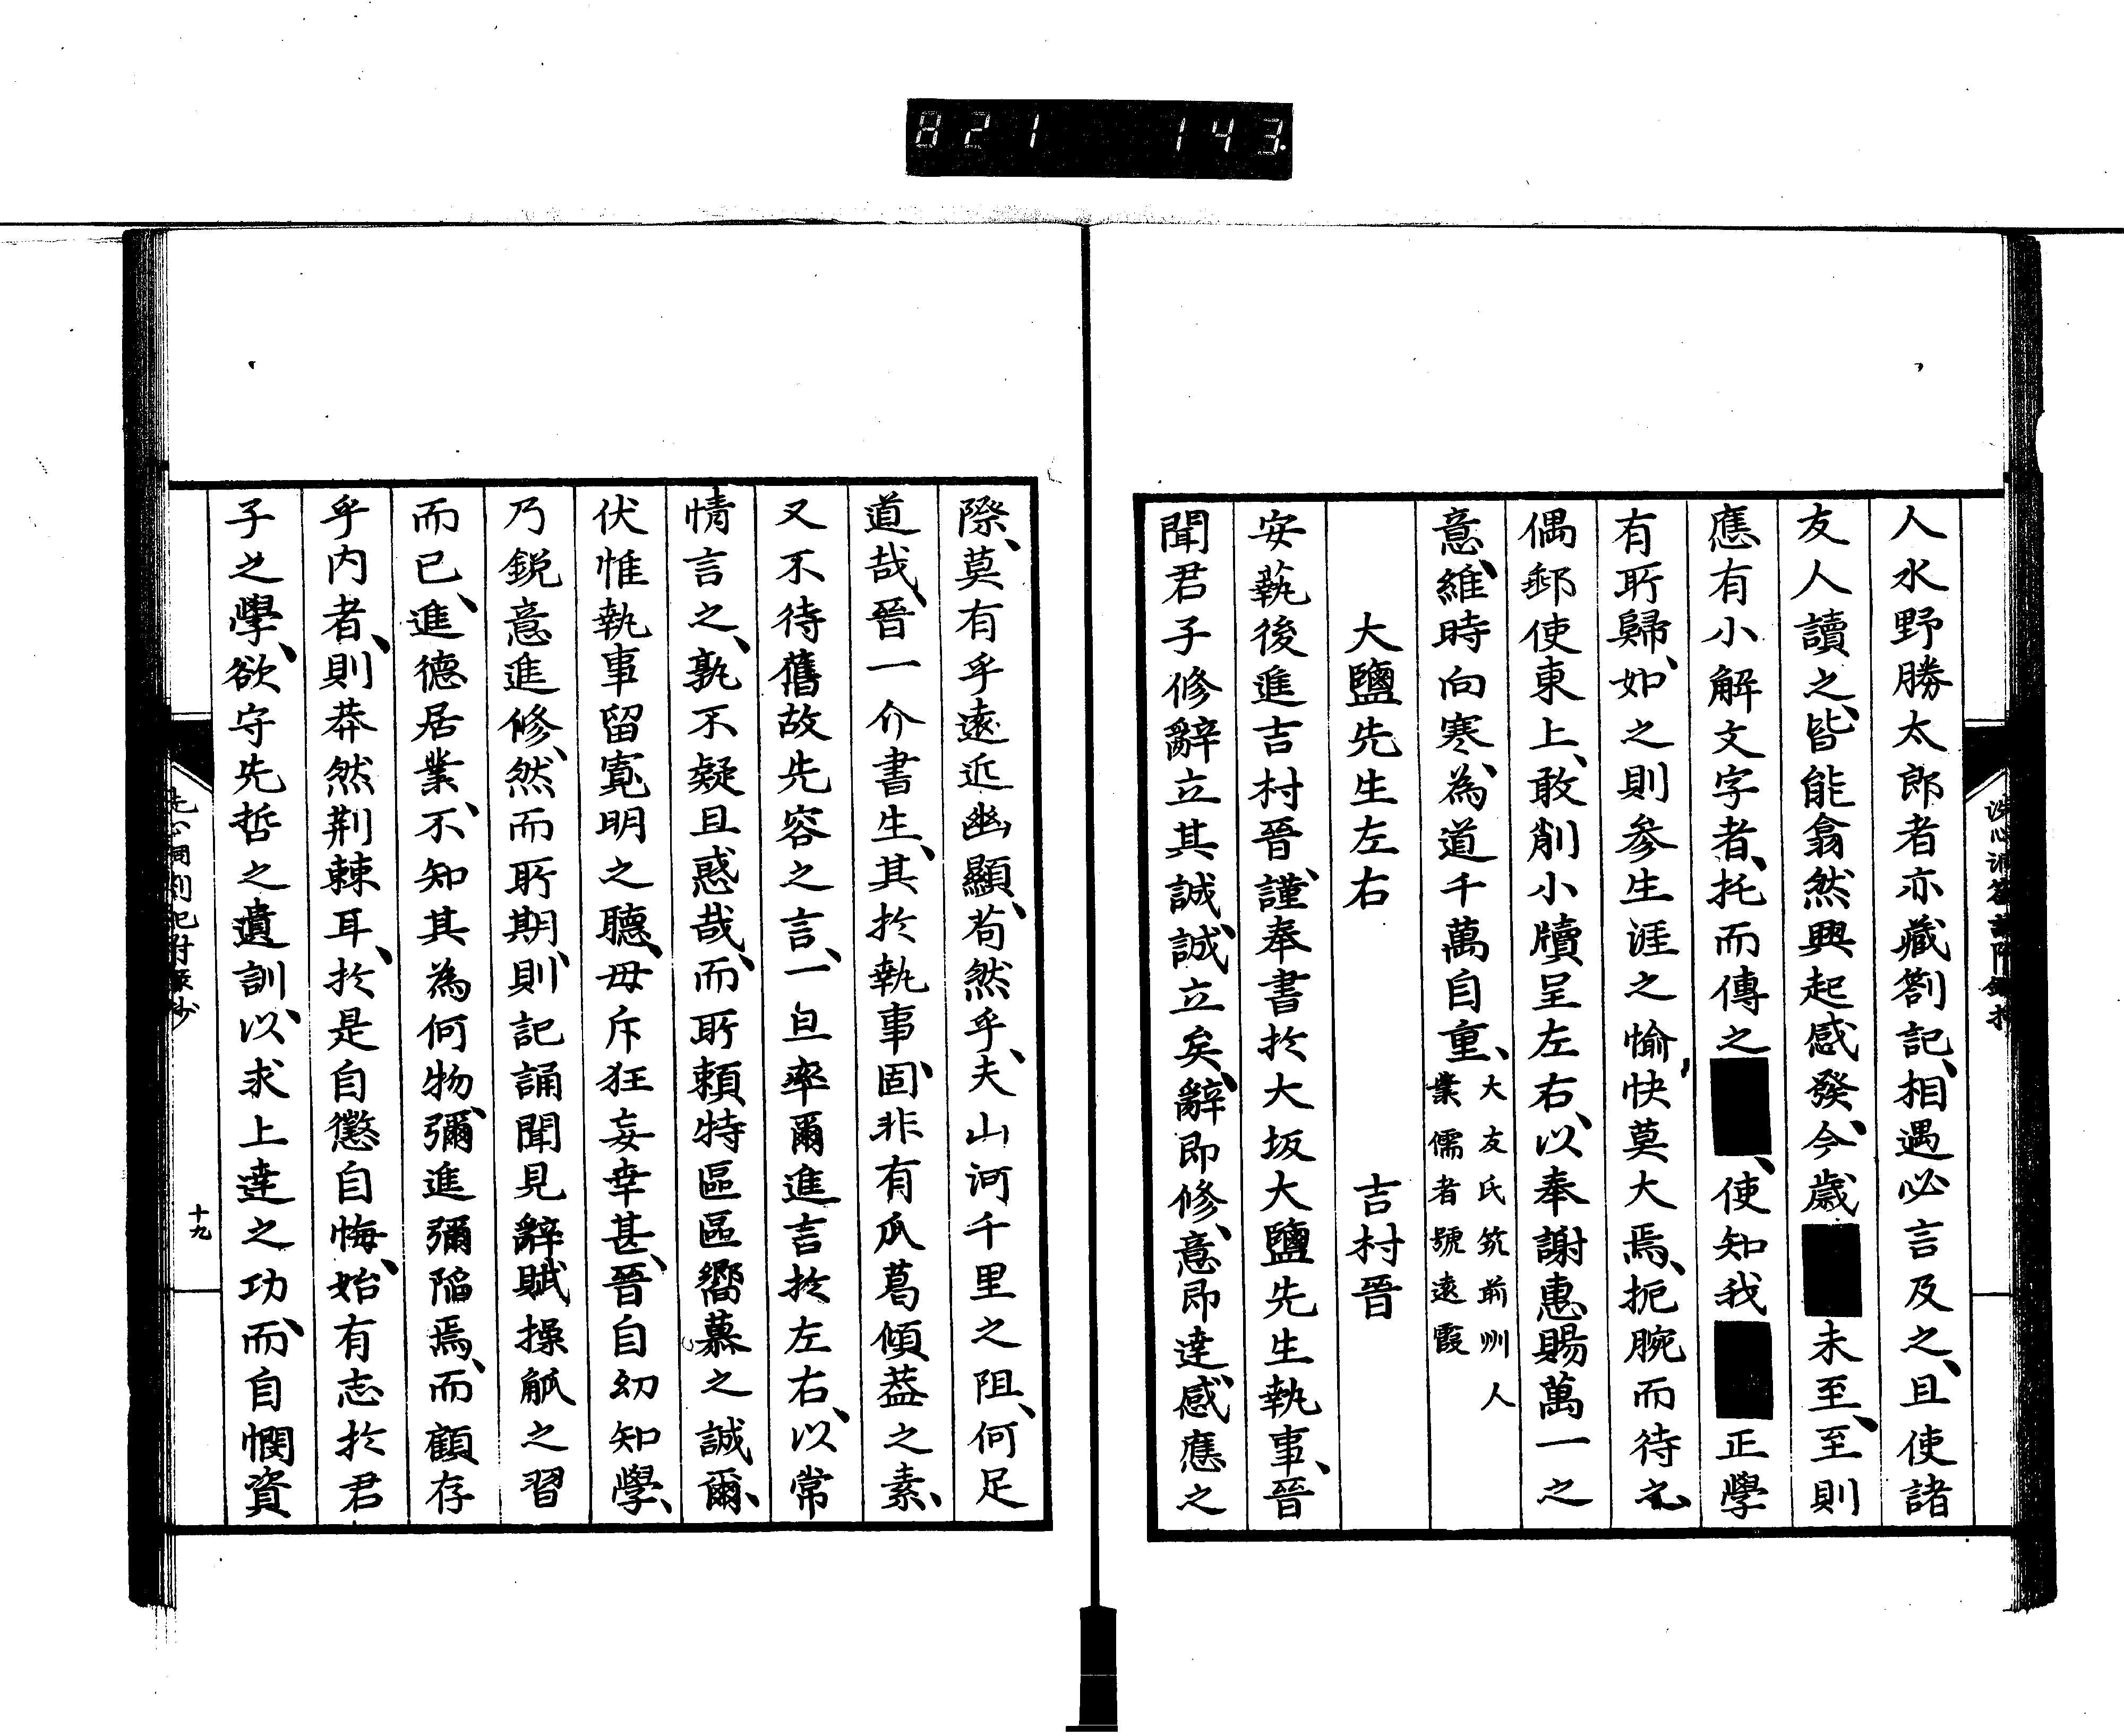 821 143
人水野勝太郎者亦藏劄記、相遇必言及之、且使諸
友人讀之、皆能翕然興起感發、今歲■未至、至則
應有小解文字者、托而傳之■、使知我■正學
有所歸、如之則參生涯之愉快莫大焉、扼腕而待之
偶郵使東上、敢削小牘呈左右、以奉謝惠賜萬一之
意、維時向寒、為道千萬自重、大友氏筑前州人
業儒者號遠霞
大鹽先生左右 吉村晉
安藝後進吉村晉、謹奉書於大坂大鹽先生執事、晉
聞君子修辭立其誠、誠立矣、辭即修、意即達、感應之
際、莫有乎遠近幽顯、苟然乎、夫山河千里之阻、何足
道哉、晉一介書生、其於執事、固非有瓜葛傾蓋之素、
又不待舊故先容之言、一旦率爾進言於左右、以常
情言之、孰不疑且惑哉、而所賴特區區嚮慕之誠爾、
伏惟執事留寬明之聽、毋斥狂妄幸甚、晉自幼知學、
乃銳意進修、然而所期、則記誦聞見辭賦操觚之習
而已、進德居業、不知其為何物、彌進彌陷焉、而顧存
乎內者、則莽然荊棘耳、於是自懲自悔、始有志於君
子之學、欲守先哲之遺訓、以求上達之功、而自憫資
十九